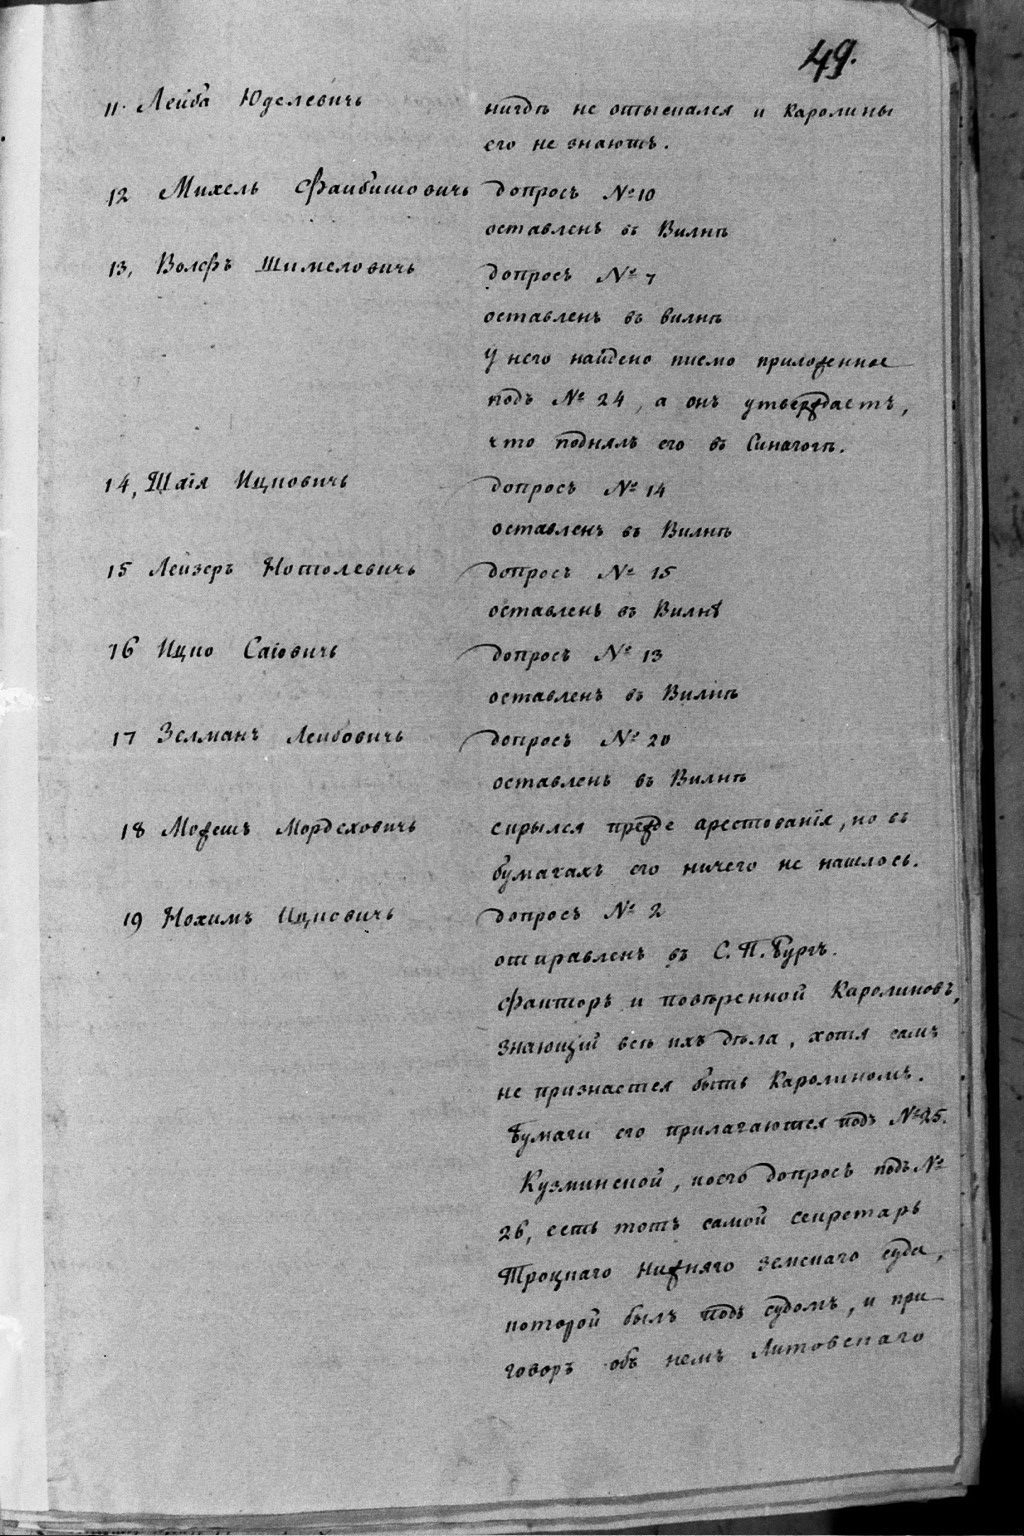 49.
11. Лейба Юделевичь
нигдѣ не отыскался и Каролины
его не знаютъ.
12 Михель Фаибишовичь
допросъ № 10
оставленъ въ Вилнѣ
13, Волфъ Шимеловичь
допросъ № 7
оставленъ въ вилнѣ
У него найдено писмо приложенное
подъ № 24, а онъ утверждаетъ,
что поднялъ его въ Синагогѣ.
14, Шаія Ицковичь
допросъ № 14
оставленъ въ Вилнѣ
15 Лейзеръ Нотолевичь
допросъ № 15
оставленъ въ Вилнѣ
16 Ицко Саіовичь
допросъ № 13
оставленъ въ Вилнѣ
17 Зелманъ Леибовичь
допросъ № 20
оставленъ въ Вилнѣ
18 Можешъ Мордеховичь
скрылся прежде арестованія, но въ
бумагахъ его ничего не нашлось.
19 Нохимъ Ицковичь
допросъ № 2
отправленъ въ С.П.бургъ.
Факторъ и повѣренной Каролиновъ,
знающій всѣ ихъ дѣла, хотя самъ
не признается быть Каролиномъ.
Бумаги его прилагаются подъ № 25.
Кузминской, коего допросъ подъ №
26, есть тотъ самой секретарь
Троцкаго нижняго земскаго суда,
которой былъ подъ судомъ, и при
говоръ объ немъ Литовскаго